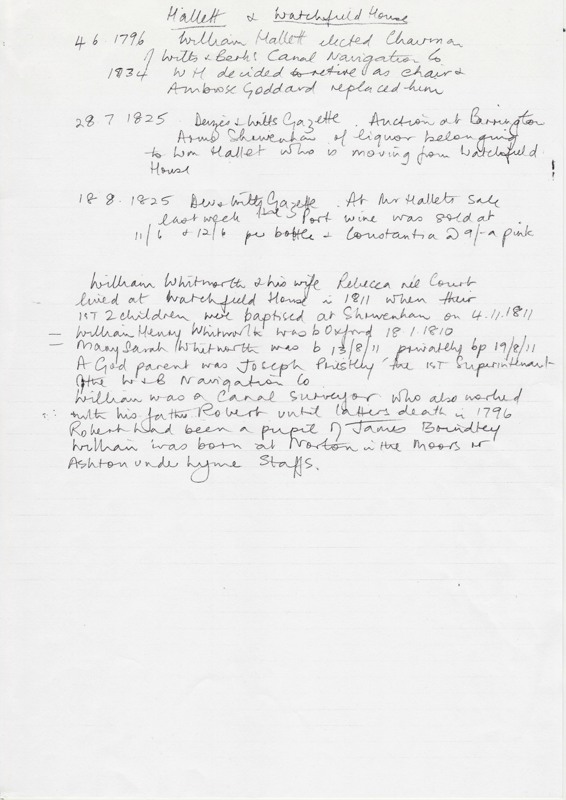 Hallett & Watchfield House
4 6 1796 William Hallett elected Chairman
of Wilts & Berks Canal Navigation Co
1834 W H decided to retire as chair &
Ambrose Goddard replaced him
28 7 1825 Devizes & Wilts Gazette. Auction at Barrington
Arms Shrivenham of liquor belonging
to Wm Hallet who is moving from Watchfield
House
18 8. 1825 Dev & Wilts Gazette. At Mr Hallets Sale
last week Port wine was sold at
11/6 & 12/6 per bottle & Constantia @ 9/-a pink
William Whitworth & his wife Rebecca née Court
lived at Watchfield House in 1811 when their
1ST 2 children were baptised at Shrivenham on 4.11.1811
= William Henry Whitworth was b Oxford 18 1.1810
= Mary Sarah Whitworth was b 13/8/11 privately bp 19/8/11
A God parent was Joseph Priestley the 1ST Superintendant
of the W & B Navigation Co
William was a Canal surveyor who also worked
with his father Robert until latters death in 1796
Robert had been a pupil of James Brindley
William was born at Norton in the Moors nr
Ashton under Lyme Staffs.